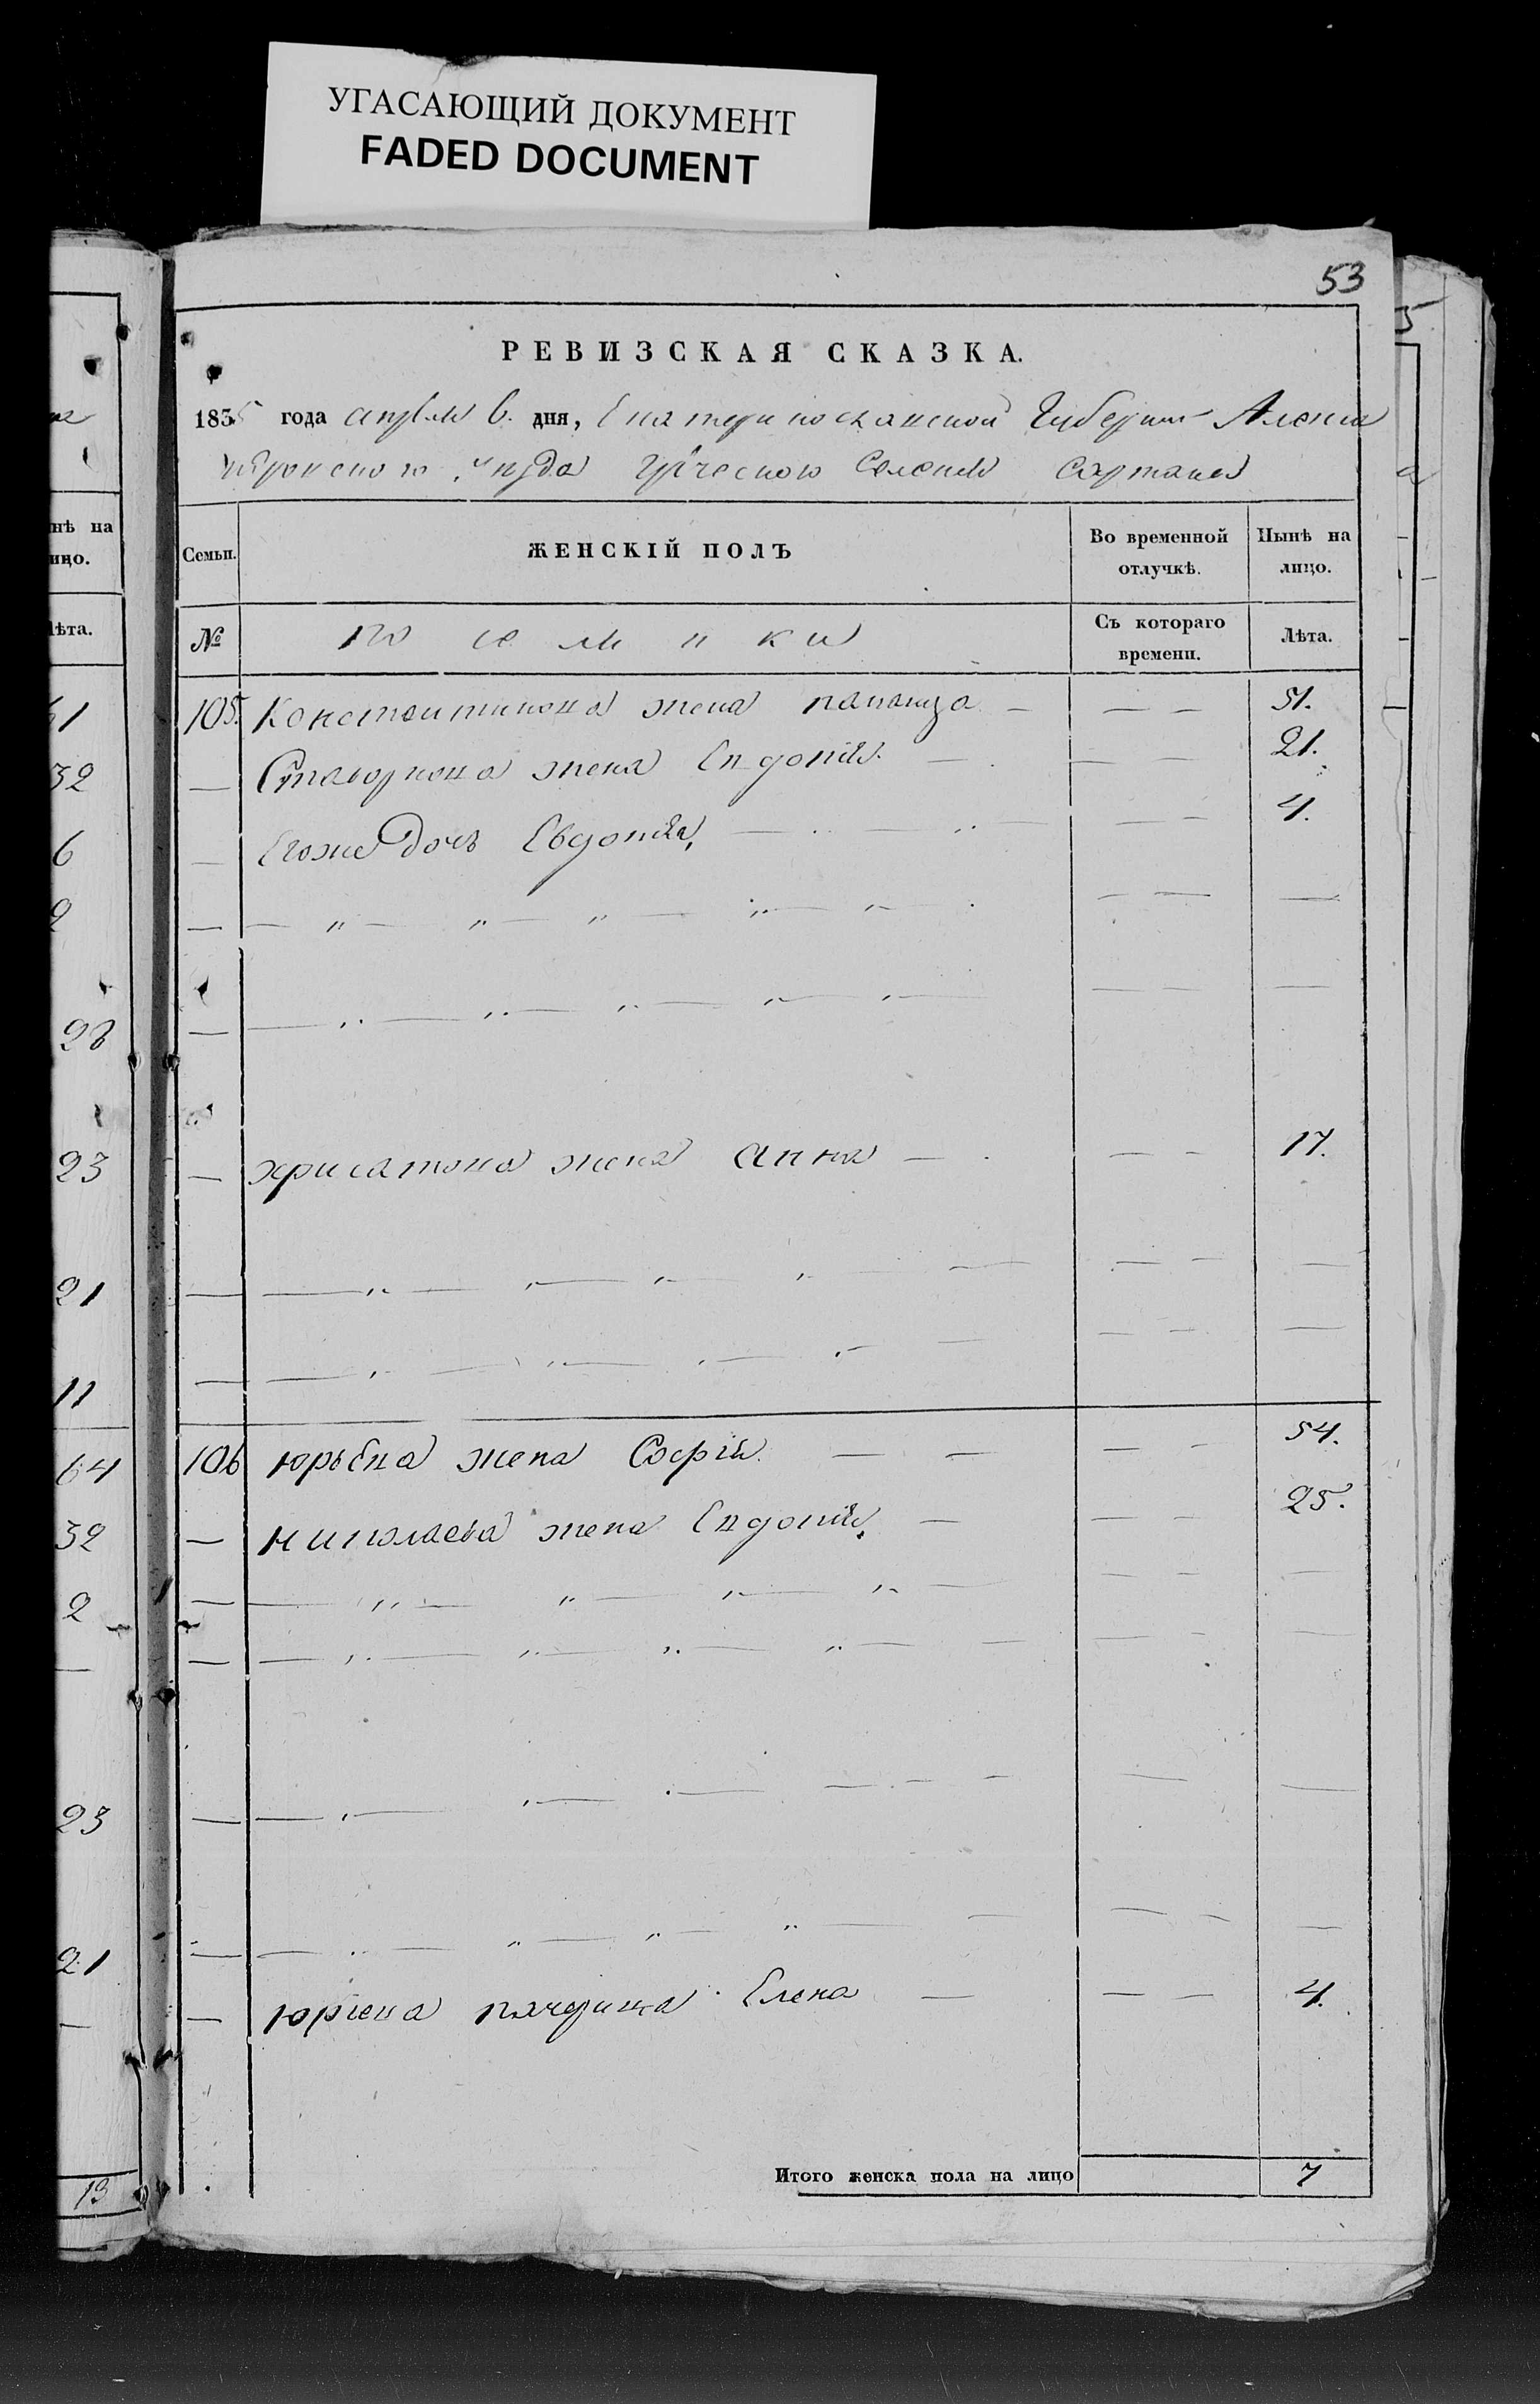 УГАСАЮЩИЙ ДОКУМЕНТ
FADED DOCUMENT
53
РЕВИЗСКАЯ СКАЗКА.
1835 года апреля 6. дня, Екатеринославской Губернии Алекса
ндровского уезда греческого Селения Сартаны
Семьи. ЖЕНСКІЙ ПОЛЪ Во временной отлучкѣ. Нынѣ на лицо.
№ Съ котораго времени. Лѣта.
105. Константинова жена — — — 51.
Ставринова жена Евдокия — — — 21.
— Егоже дочь Евдокия, — — — 4.
— Хрисатова жена Анна — — — 17.
106 Юрьева жена София — — — — 54.
— Николаева жена Евдокия, — — — 25.
— Юриева падчерица Елена — — — 4.
Итого женска пола на лицо 7
нѣ на
лицо.
Лѣта.
61
32
6
2
28
23
21
11
64
32
2
23
21
13